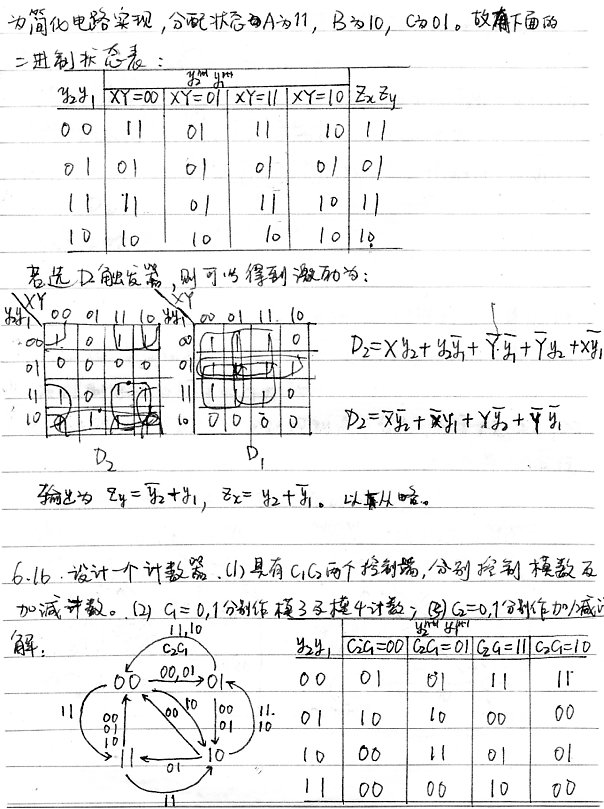 为简化电路实现，分配状态为A为11，B为10，C为01。故有下面的
二进制状态表：
y₂ⁿ⁺¹ y₁ⁿ⁺¹
y₂y₁ XY=00 XY=01 XY=11 XY=10 Zx Zy
00 11 01 11 10 11
01 01 01 01 01 01
11 11 01 11 10 11
10 10 10 10 10 10
若选D触发器，则可以得到激励为：
XY XY
y₂y₁ 00 01 11 10 y₂y₁ 00 01 11 10
00 1 0 1 1 00 1 1 1 0
01 0 0 0 0 01 1 1 1 1
11 1 0 1 1 11 1 1 1 0
10 1 1 1 1 10 0 0 0 0
D₂ D₁
D₂=Xy₂+y₂y̅₁+Y̅·y̅₁+Y̅y₂+Xy̅₁
D₂=X̅y̅₂+X̅y₁+Yy̅₂+Y̅y̅₁
输出为 Zy=y̅₂+y₁，Zx=y₂+y̅₁。以下从略。
6.16. 设计一个计数器.(1)具有C₁C₂两个控制端,分别控制模数及
加减计数。(2) C₁=0,1分别作模3及模4计数；(3)C₂=0,1分别作加/减计
解：
11,10
C₂C₁
00 00,01 01
11 00 01 10 00 10 00 01 11. 10
11 01 10
11
y₂ⁿ⁺¹ y₁ⁿ⁺¹
y₂y₁ C₂C₁=00 C₂C₁=01 C₂C₁=11 C₂C₁=10
00 01 01 11 11
01 10 10 00 00
10 00 11 01 01
11 00 00 10 00